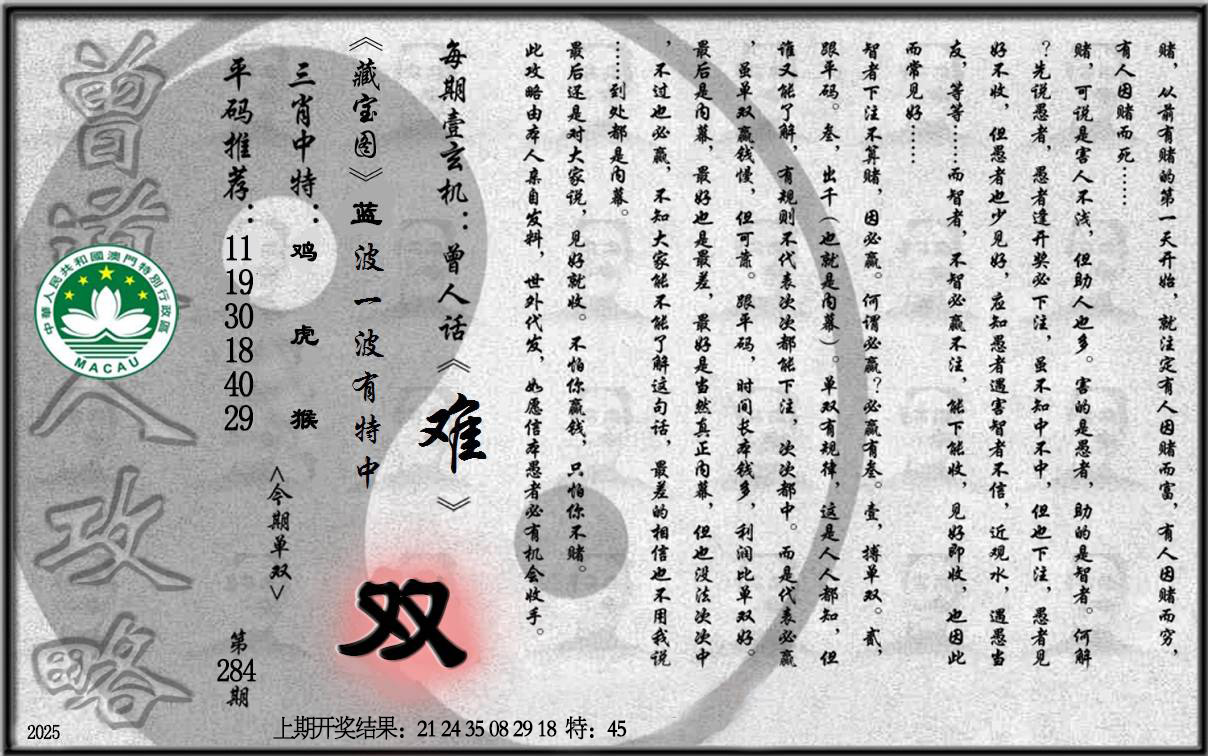 赌，从前有赌的第一天开始，就注定有人因赌而富，有人因赌而穷，
有人因赌而死……
赌，可说是害人不浅，但助人也多。害的是愚者，助的是智者。何解
？先说愚者，愚者逢开奖必下注，虽不知中不中，但也下注，愚者见
好不收，但愚者也少见好，应知愚者遇害智者不信，近观水，遇愚当
友，等等……而智者，不智必赢不注，能下能收，见好即收，也因此
而常见好……
智者下注不算赌，因必赢。何谓必赢？必赢有叁。壹，搏单双。贰，
跟平码。叁，出千（也就是内幕）。单双有规律，这是人人都知，但
谁又能了解，有规则不代表次次都能下注，次次都中。而是代表必赢
，虽单双赢钱慢，但可靠。跟平码，时间长本钱多，利润比单双好。
最后是内幕，最好也是最差，最好是当然真正内幕，但也没法次次中
，不过也必赢，不知大家能不能了解这句话，最差的相信也不用我说
……到处都是内幕。
最后还是对大家说，见好就收。不怕你赢钱，只怕你不赌。
此攻略由本人亲自发料，世外代发，如愿信本愚者必有机会收手。
每期壹玄机：曾人话《难》
《藏宝图》蓝波一波有特中
双
三肖中特：鸡 虎 猴
<今期单双>
平码推荐：11 19 30 18 40 29
第284期
曾道人攻略
中華人民共和國澳門特別行政區
MACAU
2025
上期开奖结果：21 24 35 08 29 18 特：45